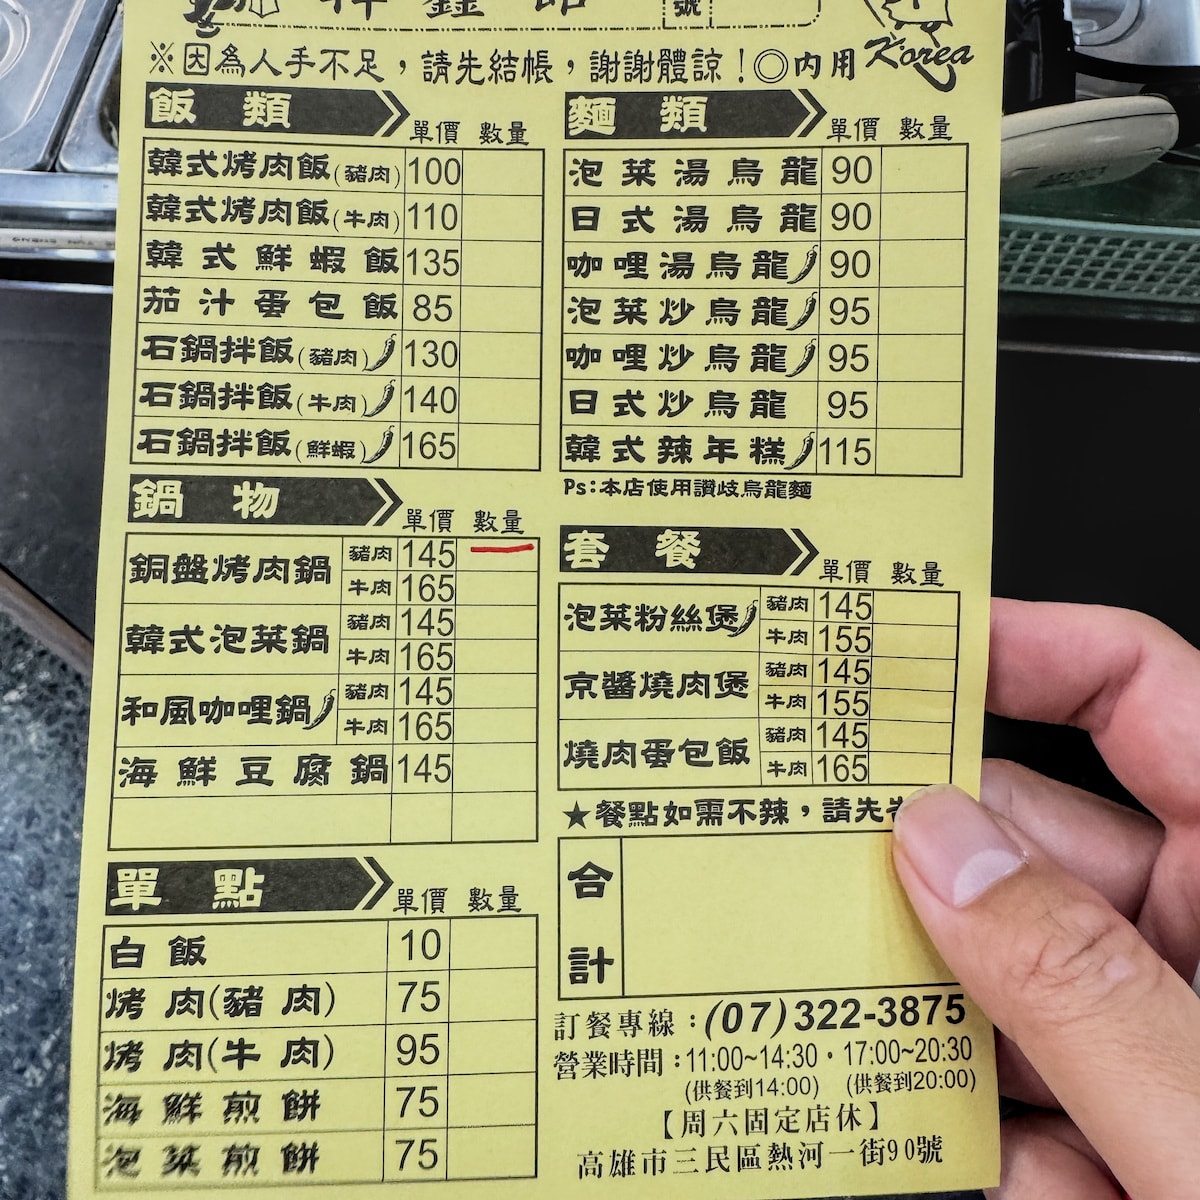 號
Korea
※因為人手不足，請先結帳，謝謝體諒！◎內用
飯類 單價 數量
韓式烤肉飯(豬肉) 100
韓式烤肉飯(牛肉) 110
韓式鮮蝦飯 135
茄汁蛋包飯 85
石鍋拌飯(豬肉) 130
石鍋拌飯(牛肉) 140
石鍋拌飯(鮮蝦) 165
麵類 單價 數量
泡菜湯烏龍 90
日式湯烏龍 90
咖哩湯烏龍 90
泡菜炒烏龍 95
咖哩炒烏龍 95
日式炒烏龍 95
韓式辣年糕 115
Ps:本店使用讚岐烏龍麵
鍋物 單價 數量
銅盤烤肉鍋 豬肉 145
牛肉 165
韓式泡菜鍋 豬肉 145
牛肉 165
和風咖哩鍋 豬肉 145
牛肉 165
海鮮豆腐鍋 145
套餐 單價 數量
泡菜粉絲煲 豬肉 145
牛肉 155
京醬燒肉煲 豬肉 145
牛肉 155
燒肉蛋包飯 豬肉 145
牛肉 165
★餐點如需不辣，請先
合計
單點 單價 數量
白飯 10
烤肉(豬肉) 75
烤肉(牛肉) 95
海鮮煎餅 75
泡菜煎餅 75
訂餐專線：(07)322-3875
營業時間：11:00~14:30・17:00~20:30
(供餐到14:00) (供餐到20:00)
【周六固定店休】
高雄市三民區熱河一街90號